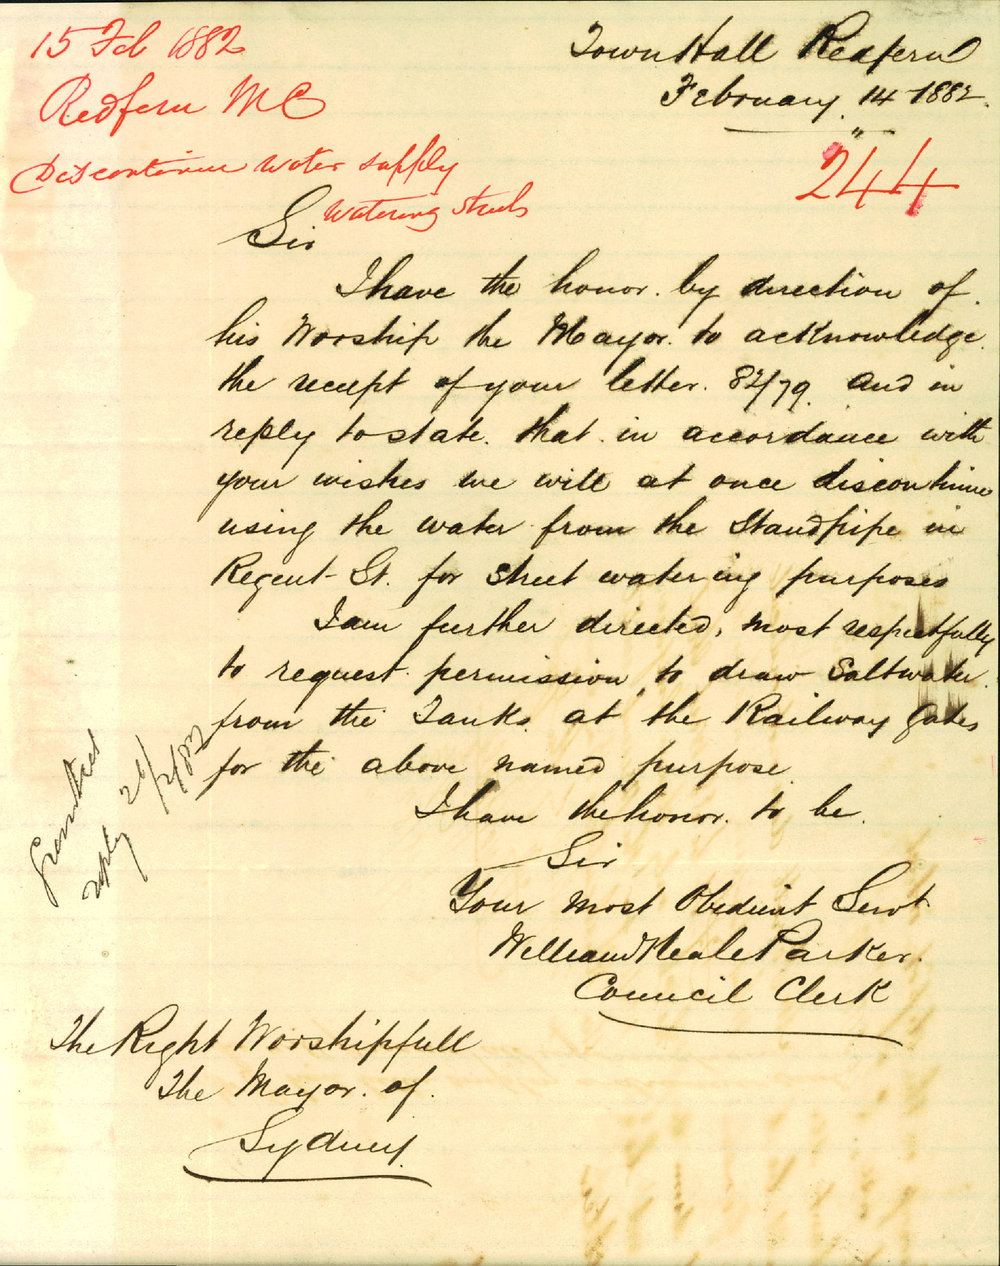 15 Feb 1882
Redfern MC
Discontinue water supply
Watering Streets
Town Hall Redfern
February 14 1882.
244
Sir
I have the honor. by direction of
his Worship the Mayor. to acknowledge.
the receipt of your letter. 82/79. and in
reply to state. that. in accordance with
your wishes we will at once discontinue
using the water from the Standpipe in
Regent St. for street watering purposes
I am further directed, most respectfully
to request permission, to draw Saltwater.
from the Tanks at the Railway Gates
for the above named purpose.
I have the honor. to be.
Sir
Your most Obedient Servt
William Parker.
Council Clerk
The Right Worshipfull
The Mayor. of.
Sydney.
reply 21/2/82